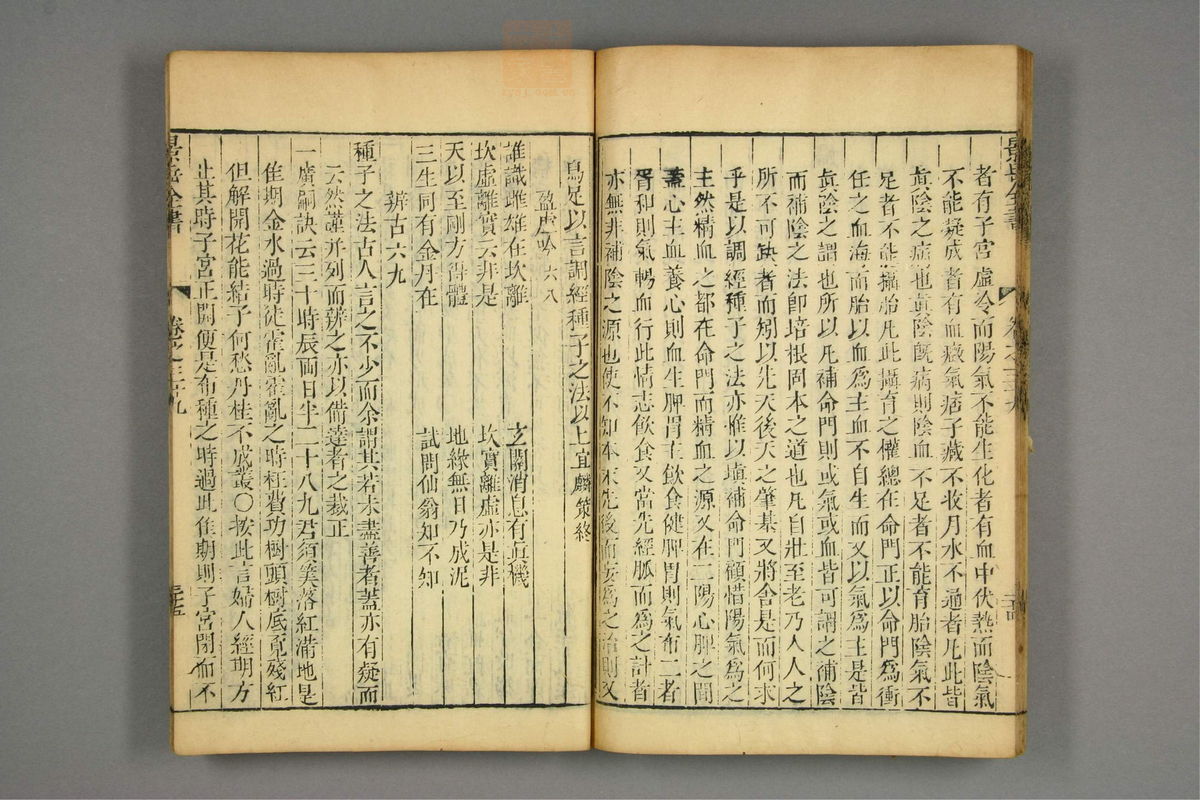 者有子宮虛冷而陽氣不能生化者有血中伏熱而陰氣
不能凝成者有血癥氣痞子藏不收月水不通者凡此皆
眞陰之病也眞陰旣病則陰血不足者不能育胎陰氣不
足者不能攝胎凡此攝育之權總在命門正以命門爲衝
任之血海而胎以血爲主血不自生而又以氣爲主是皆
眞陰之謂也所以凡補命門則或氣或血皆可謂之補陰
而補陰之法卽培根固本之道也凡自壯至老乃人人之
所不可缺者而矧以先天後天之肇基又將舍是而何求
乎是以調經種子之法亦惟以塡補命門顧惜陽氣爲之
主然精血之都在命門而精血之源又在二陽心脾之間
蓋心主血養心則血生脾胃主飲食健脾胃則氣布二者
胥和則氣暢血行此情志飲食又當先經脈而爲之計者
亦無非補陰之源也使不知本末先後而妄爲之治則又
景岳全書
卷之三十九
烏足以言調經種子之法以上宜麟策終
盈虛吟 六八
誰識雌雄在坎離 玄關消息有眞機
坎虛離實云非是 坎實離虛亦是非
天以至剛方得體 地緣無日乃成泥
三生同有金丹在 試問仙翁知不知
辨古 六九
種子之法古人言之不少而余謂其若未盡善者蓋亦有疑而
云然謹并列而辨之亦以備達者之裁正
一廣嗣訣云三十時辰兩日半二十八九君須筭落紅滿地是
隹期金水過時徒霍亂霍亂之時枉費功樹頭樹底覓殘紅
但解開花能結子何愁丹桂不成叢〇按此言婦人經期方
止其時子宮正開便是布種之時過此隹期則子宮閉而不
景岳全書
卷之三十九